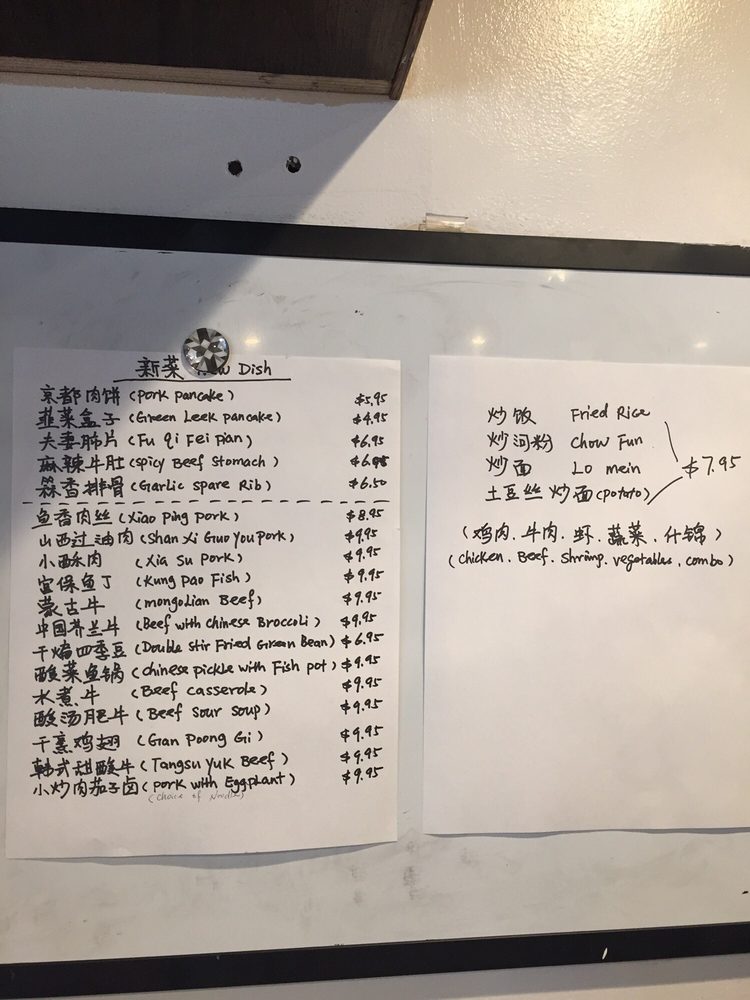 新菜 New Dish
京都肉饼 (pork pancake) $5.95
韭菜盒子 (Green Leek pancake) $4.95
夫妻肺片 (Fu Qi Fei Pian) $6.95
麻辣牛肚 (spicy Beef Stomach) $6.95
蒜香排骨 (Garlic spare Rib) $6.50
鱼香肉丝 (Xiao Ping Pork) $8.95
山西过油肉 (Shan Xi Guo You Pork) $9.95
小酥肉 (Xia Su Pork) $9.95
宫保鱼丁 (Kung Pao Fish) $9.95
蒙古牛 (mongolian Beef) $9.95
中国芥兰牛 (Beef with Chinese Broccoli) $9.95
干煸四季豆 (Double Stir Fried Green Bean) $6.95
酸菜鱼锅 (chinese pickle with Fish pot) $9.95
水煮牛 (Beef casserole) $9.95
酸汤肥牛 (Beef Sour Soup) $9.95
干烹鸡翅 (Gan Poong Gi) $9.95
韩式甜酸牛 (Tangsu Yuk Beef) $9.95
小炒肉茄子卤 (pork with Eggplant) $9.95
(choice of Noodle)
炒饭 Fried Rice
炒河粉 Chow Fun
炒面 Lo mein
$7.95
土豆丝炒面 (potato)
(鸡肉.牛肉.虾.蔬菜.什锦)
(chicken. Beef. Shrimp. vegetables. combo)